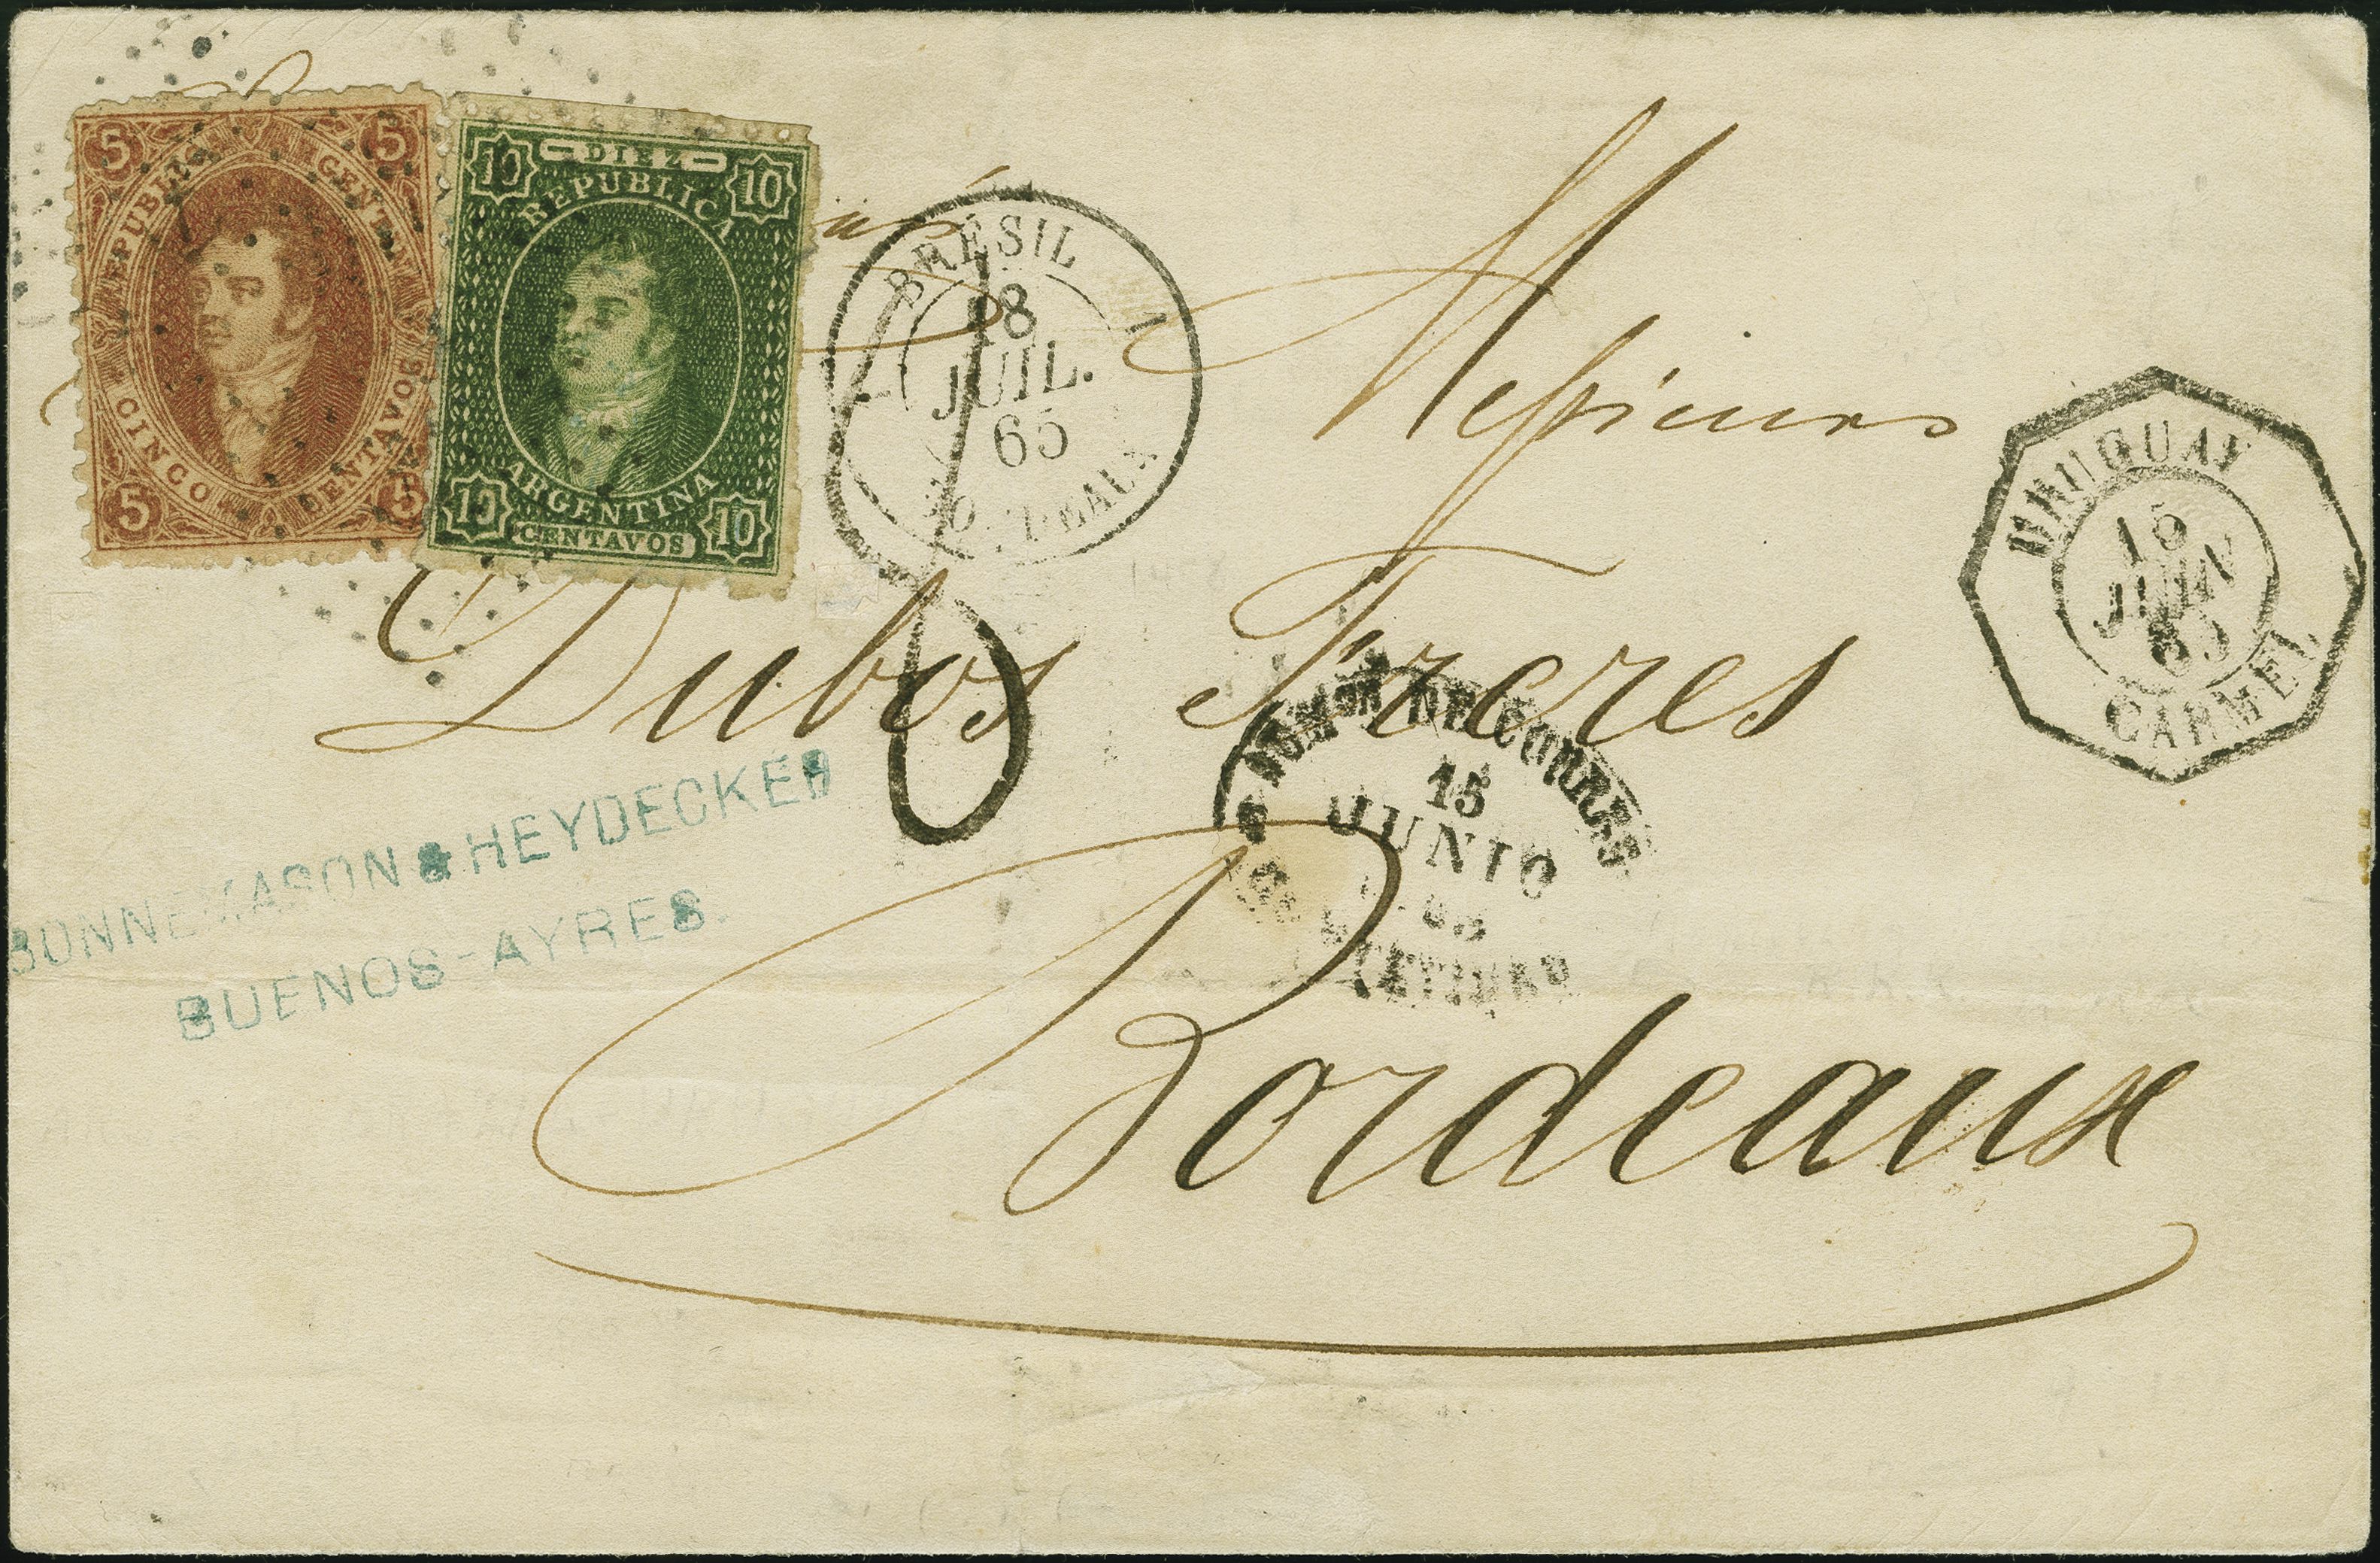 5 5
REPUBLICA ARGENTINA
CINCO CENTAVOS
5 5
10 DIEZ 10
REPUBLICA
ARGENTINA
10 CENTAVOS 10
BRÉSIL
18
JUIL.
65
BORDEAUX
Messieurs
URUGUAY
15
JUIN
65
CARMEL
Dubos Freres
BONNEMASON & HEYDECKER
BUENOS-AYRES.
DE CORREOS
15
JUNIO
65
Bordeaux